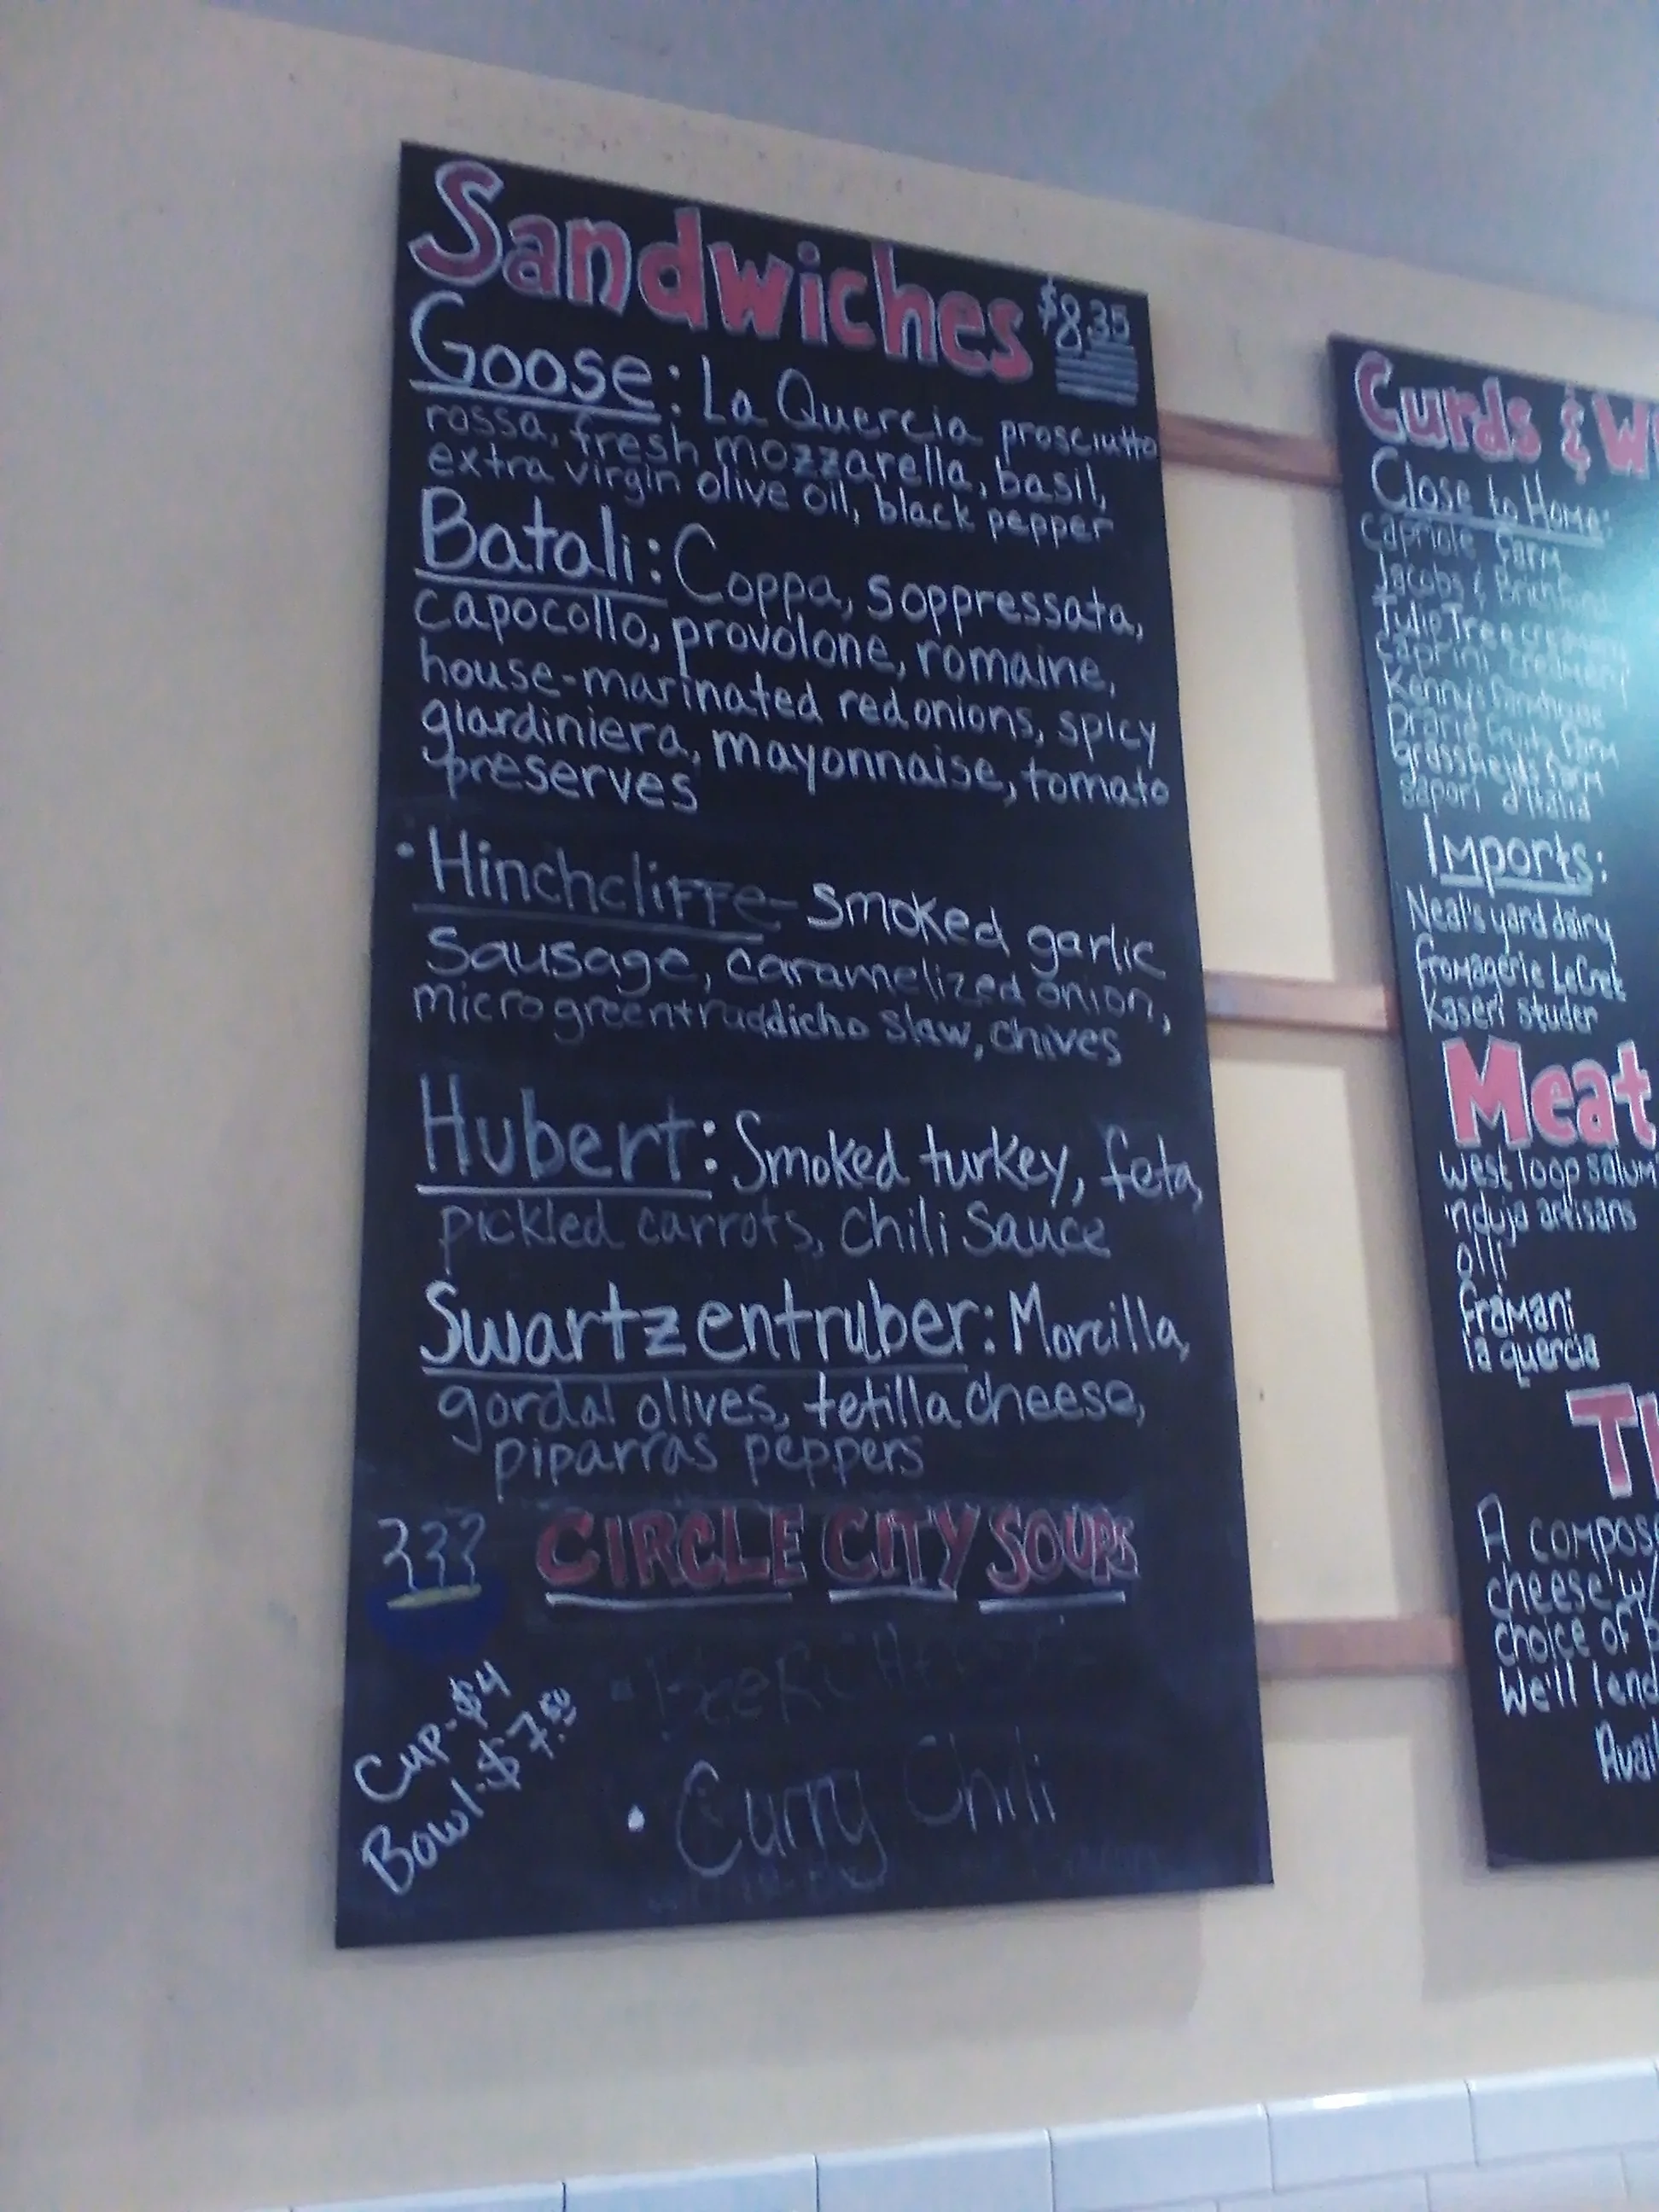 Sandwiches $8.35
Goose: La Quercia prosciutto
rossa, fresh mozzarella, basil,
extra virgin olive oil, black pepper
Batali: Coppa, soppressata,
capocollo, provolone, romaine,
house-marinated red onions, spicy
giardiniera, mayonnaise, tomato
preserves
• Hinchcliffe- smoked garlic
sausage, caramelized onion,
microgreen+raddicho slaw, chives
Hubert: Smoked turkey, feta,
pickled carrots, chili sauce
Swartzentruber: Morcilla,
gordal olives, tetilla cheese,
piparras peppers
CIRCLE CITY SOUPS
Cup-$4
Bowl-$7.50
• Curry Chili
Curds & W
Close to Home:
Capriole Farm
Jacobs & Brichford
Tulip Tree creamery
Caprini creamery
Kenny's Farmhouse
Prairie Fruits Farm
Grassfields Farm
Sapori d'Italia
Imports:
Neal's yard dairy
Fromagerie LeCret
Kaseri studer
Meat
West loop salum
'nduja artisans
olli
framani
la quercia
Th
A compos
cheese w/
choice of b
We'll lend
Avai